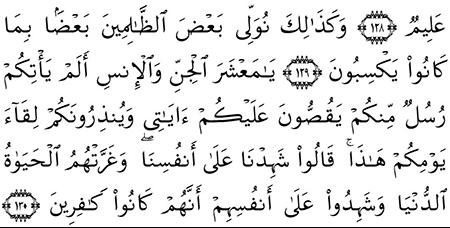 عَلِيمٌ ١٢٨ وَكَذَٰلِكَ نُوَلِّى بَعْضَ ٱلظَّـٰلِمِينَ بَعْضًۢا بِمَا
كَانُوا۟ يَكْسِبُونَ ١٢٩ يَـٰمَعْشَرَ ٱلْجِنِّ وَٱلْإِنسِ أَلَمْ يَأْتِكُمْ
رُسُلٌ مِّنكُمْ يَقُصُّونَ عَلَيْكُمْ ءَايَـٰتِى وَيُنذِرُونَكُمْ لِقَآءَ
يَوْمِكُمْ هَـٰذَا ۚ قَالُوا۟ شَهِدْنَا عَلَىٰٓ أَنفُسِنَا ۖ وَغَرَّتْهُمُ ٱلْحَيَوٰةُ
ٱلدُّنْيَا وَشَهِدُوا۟ عَلَىٰٓ أَنفُسِهِمْ أَنَّهُمْ كَانُوا۟ كَـٰفِرِينَ ١٣٠